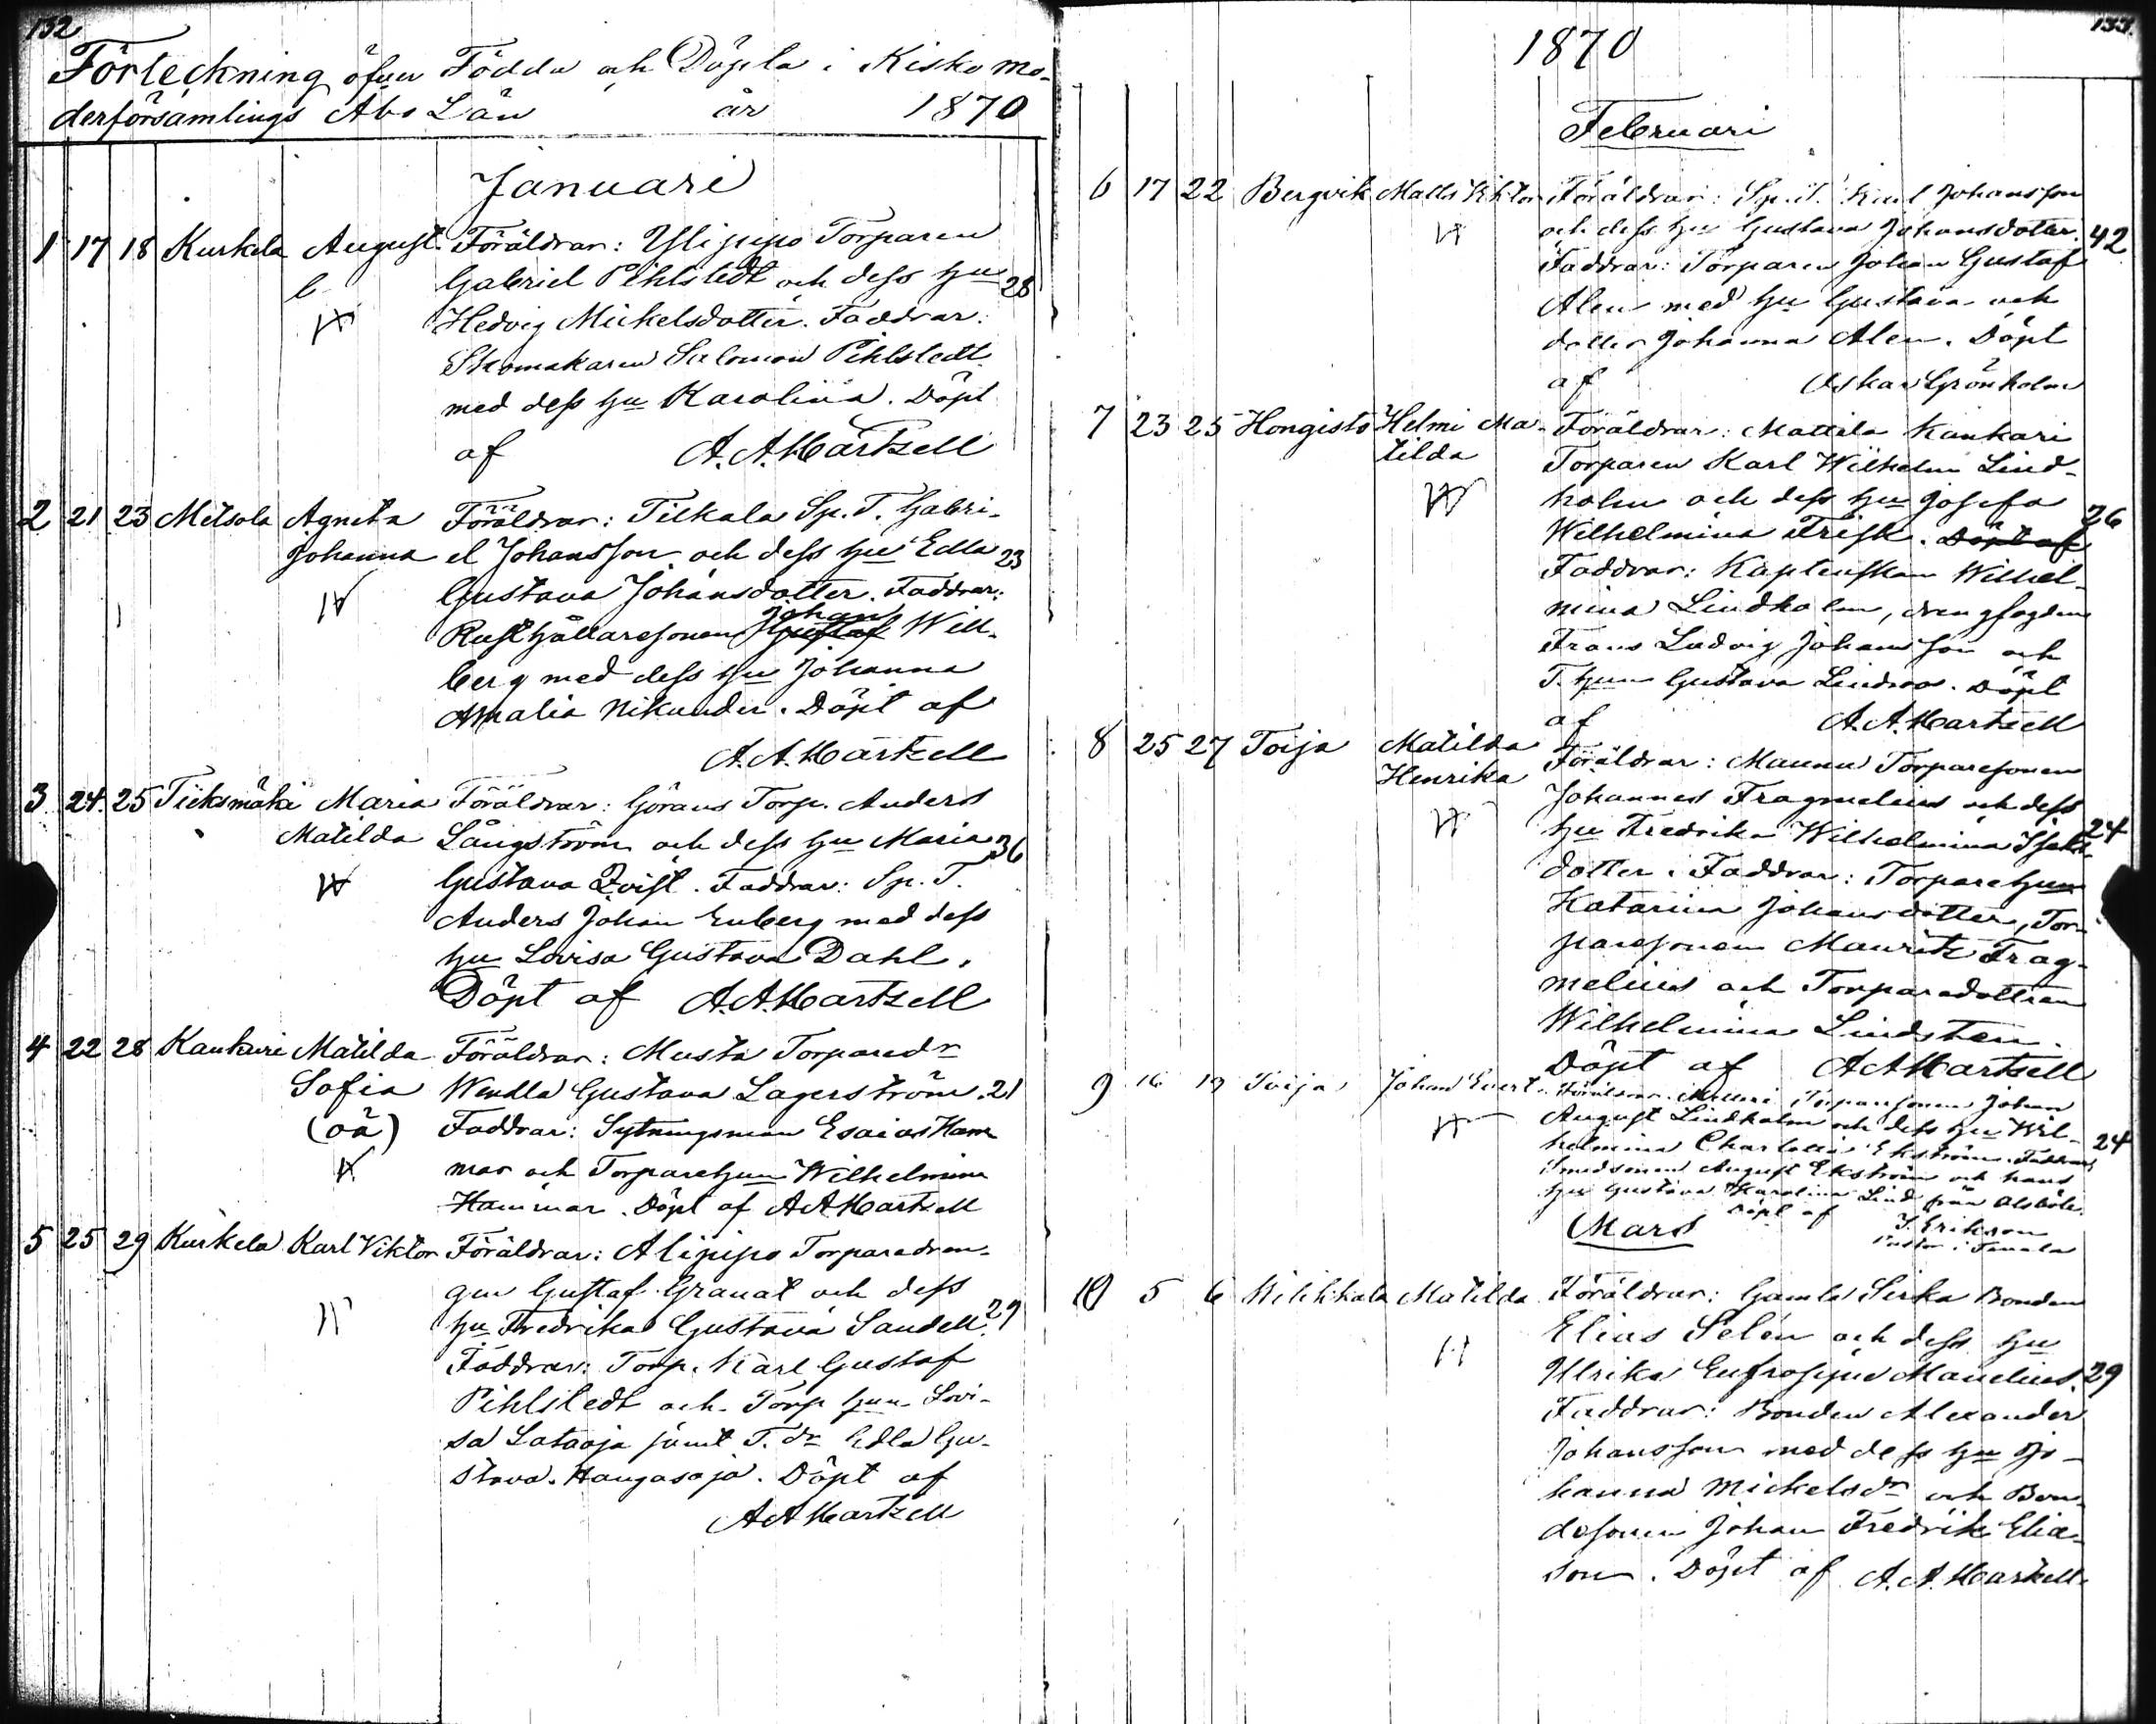 132
Förteckning öfver Födda och Döpta i Kisko mo-
derförsamlings Åbo Län år 1870
Januari
1 17 18 Kurkela August Föräldrar: Ylipipo Torparen
Gabriel Pihlstedt och dess hu 28
Hedvig Mickelsdotter. Faddrar:
Skomakaren Salomon Pihlstedt
med dess hu Karolina. Döpt
af A. A. Martzell
2 21 23 Metsola Agneta Föräldrar: Tilkala Sp. T. Gabri-
Johanna el Johansson och dess hu Edla 23
Gustava Johansdotter. Faddrar:
Johan
Rusthållaresonen Gustaf Will-
berg med dess hu Johanna
Amalia Nikander. Döpt af
A. A. Martzell
3 24. 25 Tieksmäki Maria Föräldrar: Görans Torp. Anders
Matilda Långström och dess hu Maria 36
Gustava Qvist. Faddrar: Sp. T.
Anders Johan Enberg med dess
hu Lovisa Gustava Dahl.
Döpt af A. A. Martzell
4 22 28 Kankare Matilda Föräldrar: Musta Torparedr
Sofia Wendla Gustava Lagerström. 21
(oä) Faddrar: Sytningsman Esaias Ham
mar och Torparehun Wilhelmina
Hammar. Döpt af A A Martzell
5 25 29 Kurkela Karl Viktor Föräldrar: Alipipo Torparedren-
gen Gustaf Granat och dess
hu Fredrika Gustava Sandell. 29
Faddrar: Torp. Karl Gustaf
Pihlstedt och Torp hun Lovi-
sa Lataoja jämt T. dr Edla Gu-
stava Haugasoja. Döpt af
A A Martzell
133.
1870
Februari
6 17 22 Bergvik Matts Viktor Föräldrar: Sp. T. Karl Johansson
och dess hu Gustava Johansdotter. 42
Faddrar: Torparen Johan Gustaf
Alen med hu Gustava och
dotter Johanna Alen. Döpt
af Oskar Grönholm
7 23 25 Hongisto Helmi Ma- Föräldrar: Mattila Kankari
tilda Torparen Karl Wilhelm Lind-
holm och dess hu Josefa
Wilhelmina Frisk. Döpt af 26
Faddrar: Wilhel-
mina Lindholm, drengfogden
Frans Ludvig Johansson och
T. hun Gustava Lindroos. Döpt
af A. A. Martzell
8 25 27 Toija Matilda Föräldrar: Maunu Torparesonen
Henrika Johannes Fragmelius och dess
hu Fredrika Wilhelmina Isaks- 24
dotter. Faddrar: Torparehun
Katarina Johansdotter, Tor-
paresonen Mauritz Frag-
melius och Torparedottren
Wilhelmina Lindsten.
Döpt af A A Martzell
9 16 19 Toija Johan Evert. Föräldrar: Torparesonen Johan
August Lindholm och dess hu Wil-
helmina Charlotta Ekström. Faddrar: 24
Smedsonen August Ekström och hans
hu Gustava Karolina Lind från
Döpt af J. Erikson
Pastor i Tenala
Mars
10 5 6 Wilikkala Matilda Föräldrar: Gamla Sirka Bonden
Elias Selén och dess hu
Ulrika Eufrosyne Maurelius. 29
Faddrar: Bonden Alexander
Johansson med dess hu Jo-
hanna Mickelsdr och Bon-
desonen Johan Fredrik Elia-
son. Döpt af A. A. Martzell.